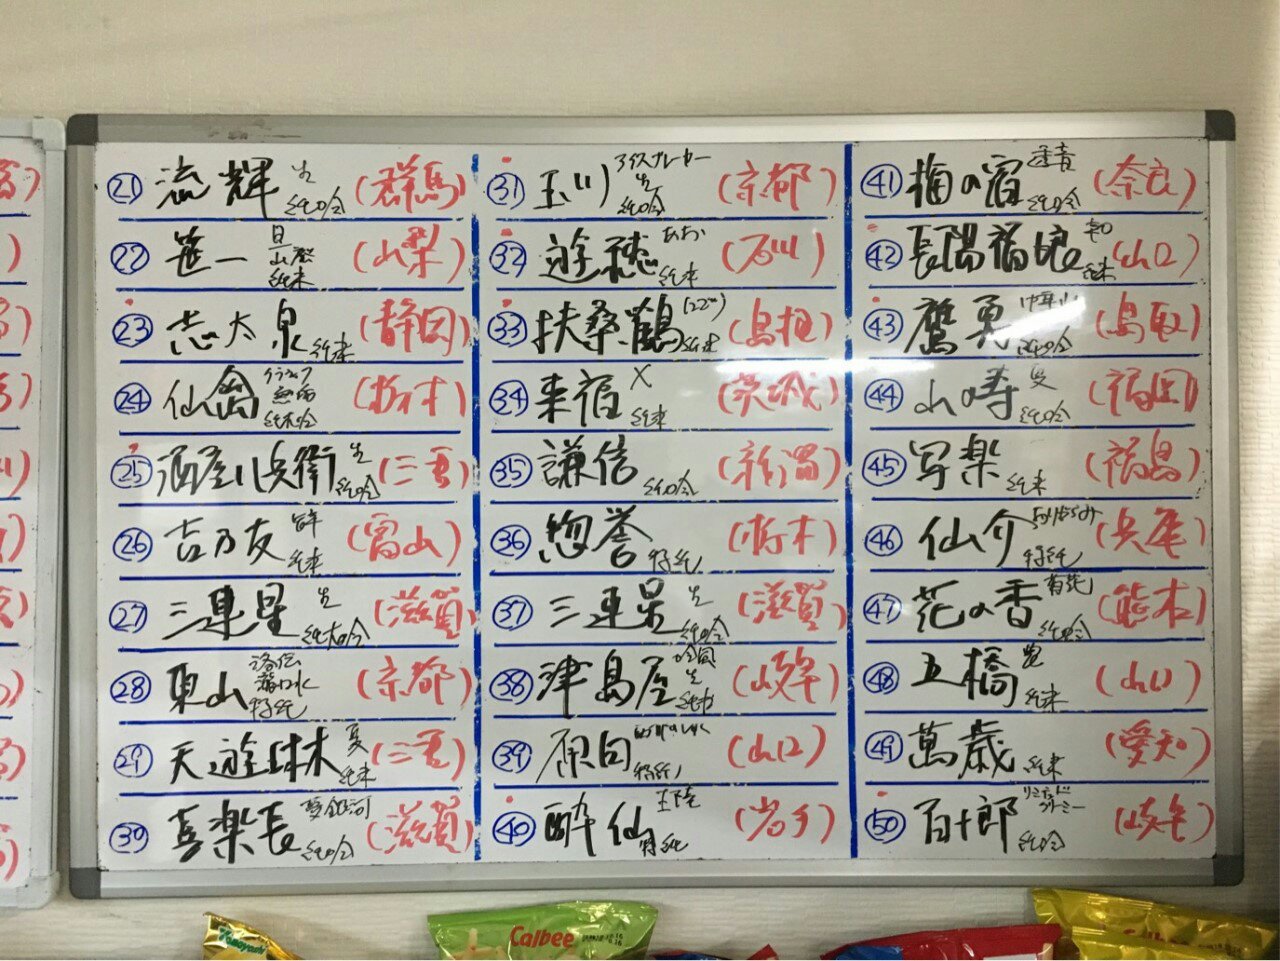 ㉑ 流輝 生 純吟 (群馬)
㉒ 笹一 旦 山廃 純米 (山梨)
㉓ 志太泉 純米 (静岡)
㉔ 仙禽 無垢 純米吟 (栃木)
㉕ 酒屋八兵衛 生 純吟 (三重)
㉖ 吉乃友 純米 (富山)
㉗ 三連星 生 純大吟 (滋賀)
㉘ 東山 洛伝 湧水 特純 (京都)
㉙ 天遊琳 夏 純米 (三重)
㉚ 喜楽長 夢銀河 純吟 (滋賀)
㉛ 玉川 アイスブレーカー 生 純吟 (京都)
㉜ 遊穂 あお 純米 (石川)
㉝ 扶桑鶴 (にごり) 純米 (島根)
㉞ 来福 X 純米 (茨城)
㉟ 謙信 純吟 (新潟)
㊱ 惣誉 特純 (栃木)
㊲ 三連星 生 純吟 (滋賀)
㊳ 津島屋 生 (岐阜)
㊴ 原田 特純 (山口)
㊵ 酔仙 特純 (岩手)
㊶ 梅の宿 純吟 (奈良)
㊷ 長陽福娘 純米 (山口)
㊸ 鷹勇 純吟 (鳥取)
㊹ 山の壽 夏 純吟 (福岡)
㊺ 写楽 純米 (福島)
㊻ 仙介 特純 (兵庫)
㊼ 花の香 純吟 (熊本)
㊽ 五橋 純米 (山口)
㊾ 萬歳 純米 (愛知)
㊿ 百十郎 純吟 (岐阜)
Yamayoshi
Calbee
Calbee